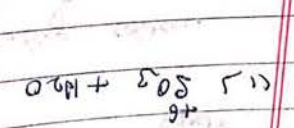 +6
SO3 + H2O